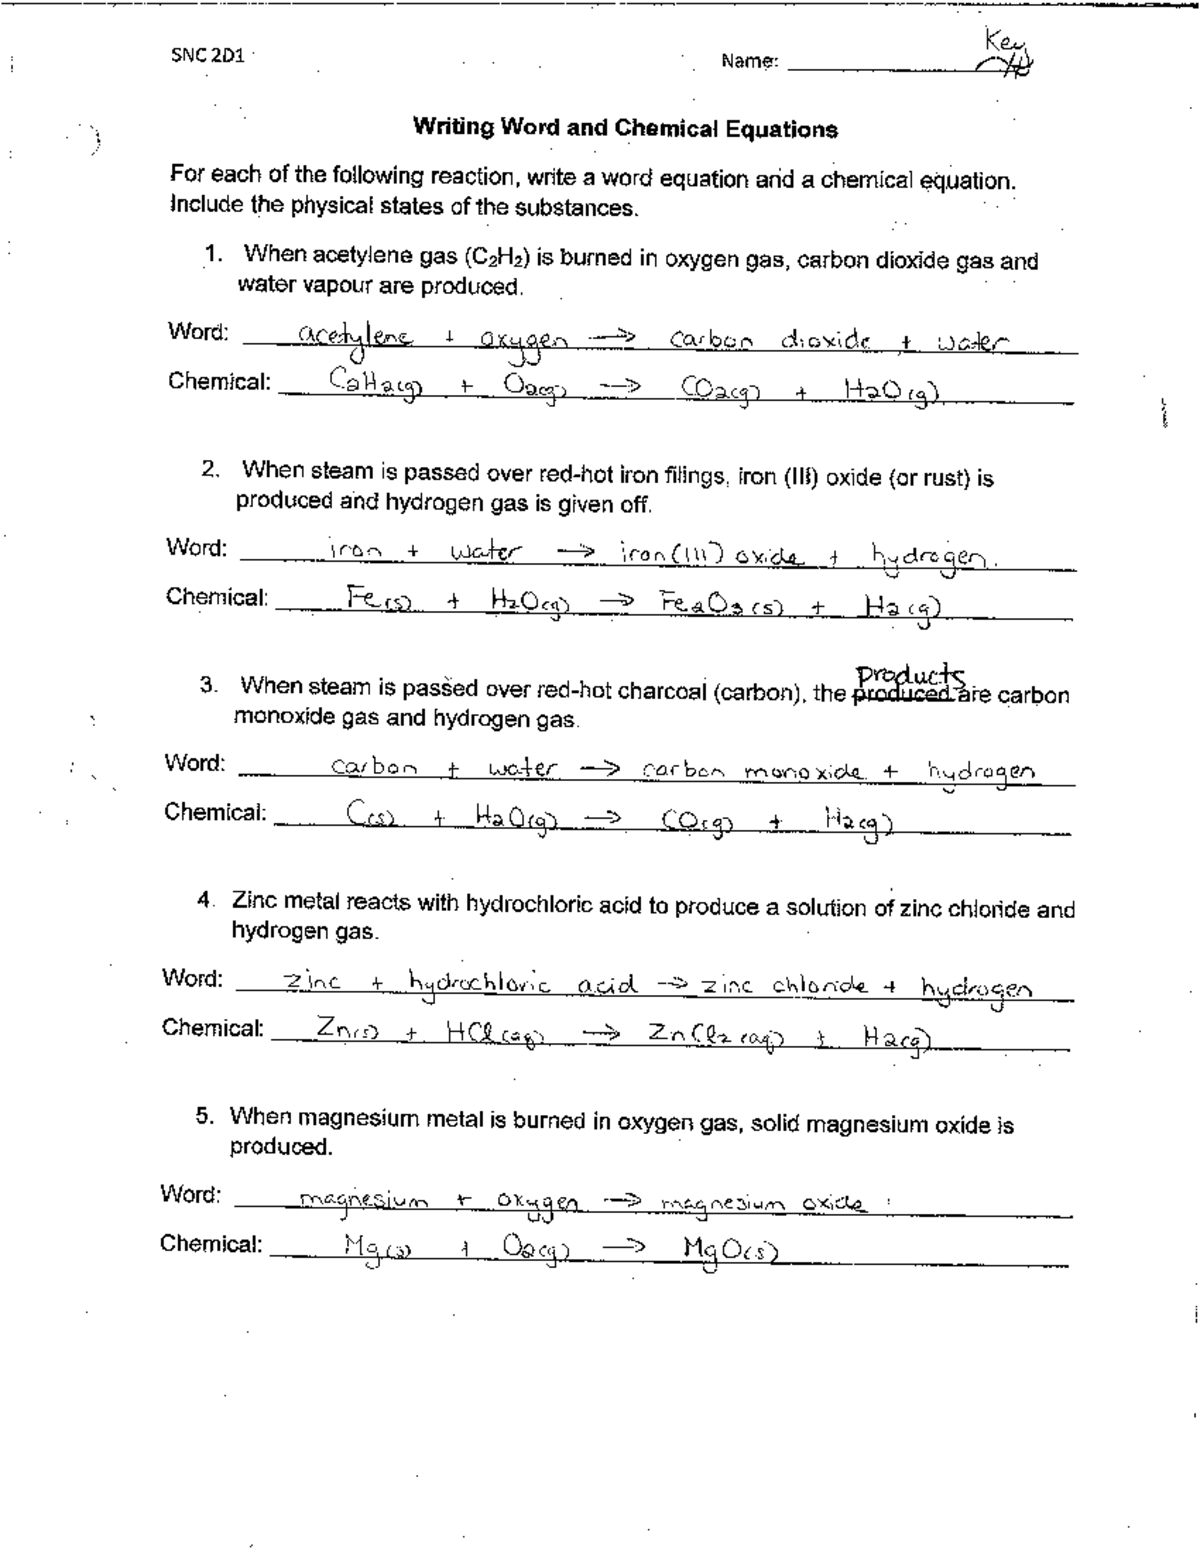 SNC 2D1
Name: Key
Writing Word and Chemical Equations
For each of the following reaction, write a word equation and a chemical equation.
Include the physical states of the substances.
1. When acetylene gas (C₂H₂) is burned in oxygen gas, carbon dioxide gas and
water vapour are produced.
Word: acetylene + oxygen → carbon dioxide + water
Chemical: C₂H₂(g) + O₂(g) → CO₂(g) + H₂O(g)
2. When steam is passed over red-hot iron filings, iron (III) oxide (or rust) is
produced and hydrogen gas is given off.
Word: iron + water → iron(III) oxide + hydrogen.
Chemical: Fe(s) + H₂O(g) → Fe₂O₃(s) + H₂(g)
products
3. When steam is passed over red-hot charcoal (carbon), the produced are carbon
monoxide gas and hydrogen gas.
Word: carbon + water → carbon monoxide + hydrogen
Chemical: C(s) + H₂O(g) → CO(g) + H₂(g)
4. Zinc metal reacts with hydrochloric acid to produce a solution of zinc chloride and
hydrogen gas.
Word: zinc + hydrochloric acid → zinc chloride + hydrogen
Chemical: Zn(s) + HCl(aq) → ZnCl₂(aq) + H₂(g)
5. When magnesium metal is burned in oxygen gas, solid magnesium oxide is
produced.
Word: magnesium + oxygen → magnesium oxide
Chemical: Mg(s) + O₂(g) → MgO(s)